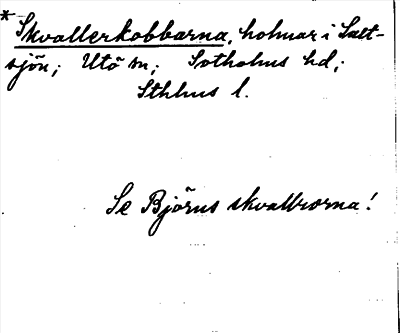 *Skvallerkobbarna, holmar i Salt-
sjön; Utö sn; Sotholms hd;
Sthlms l.
Se Björns skvallrorna!